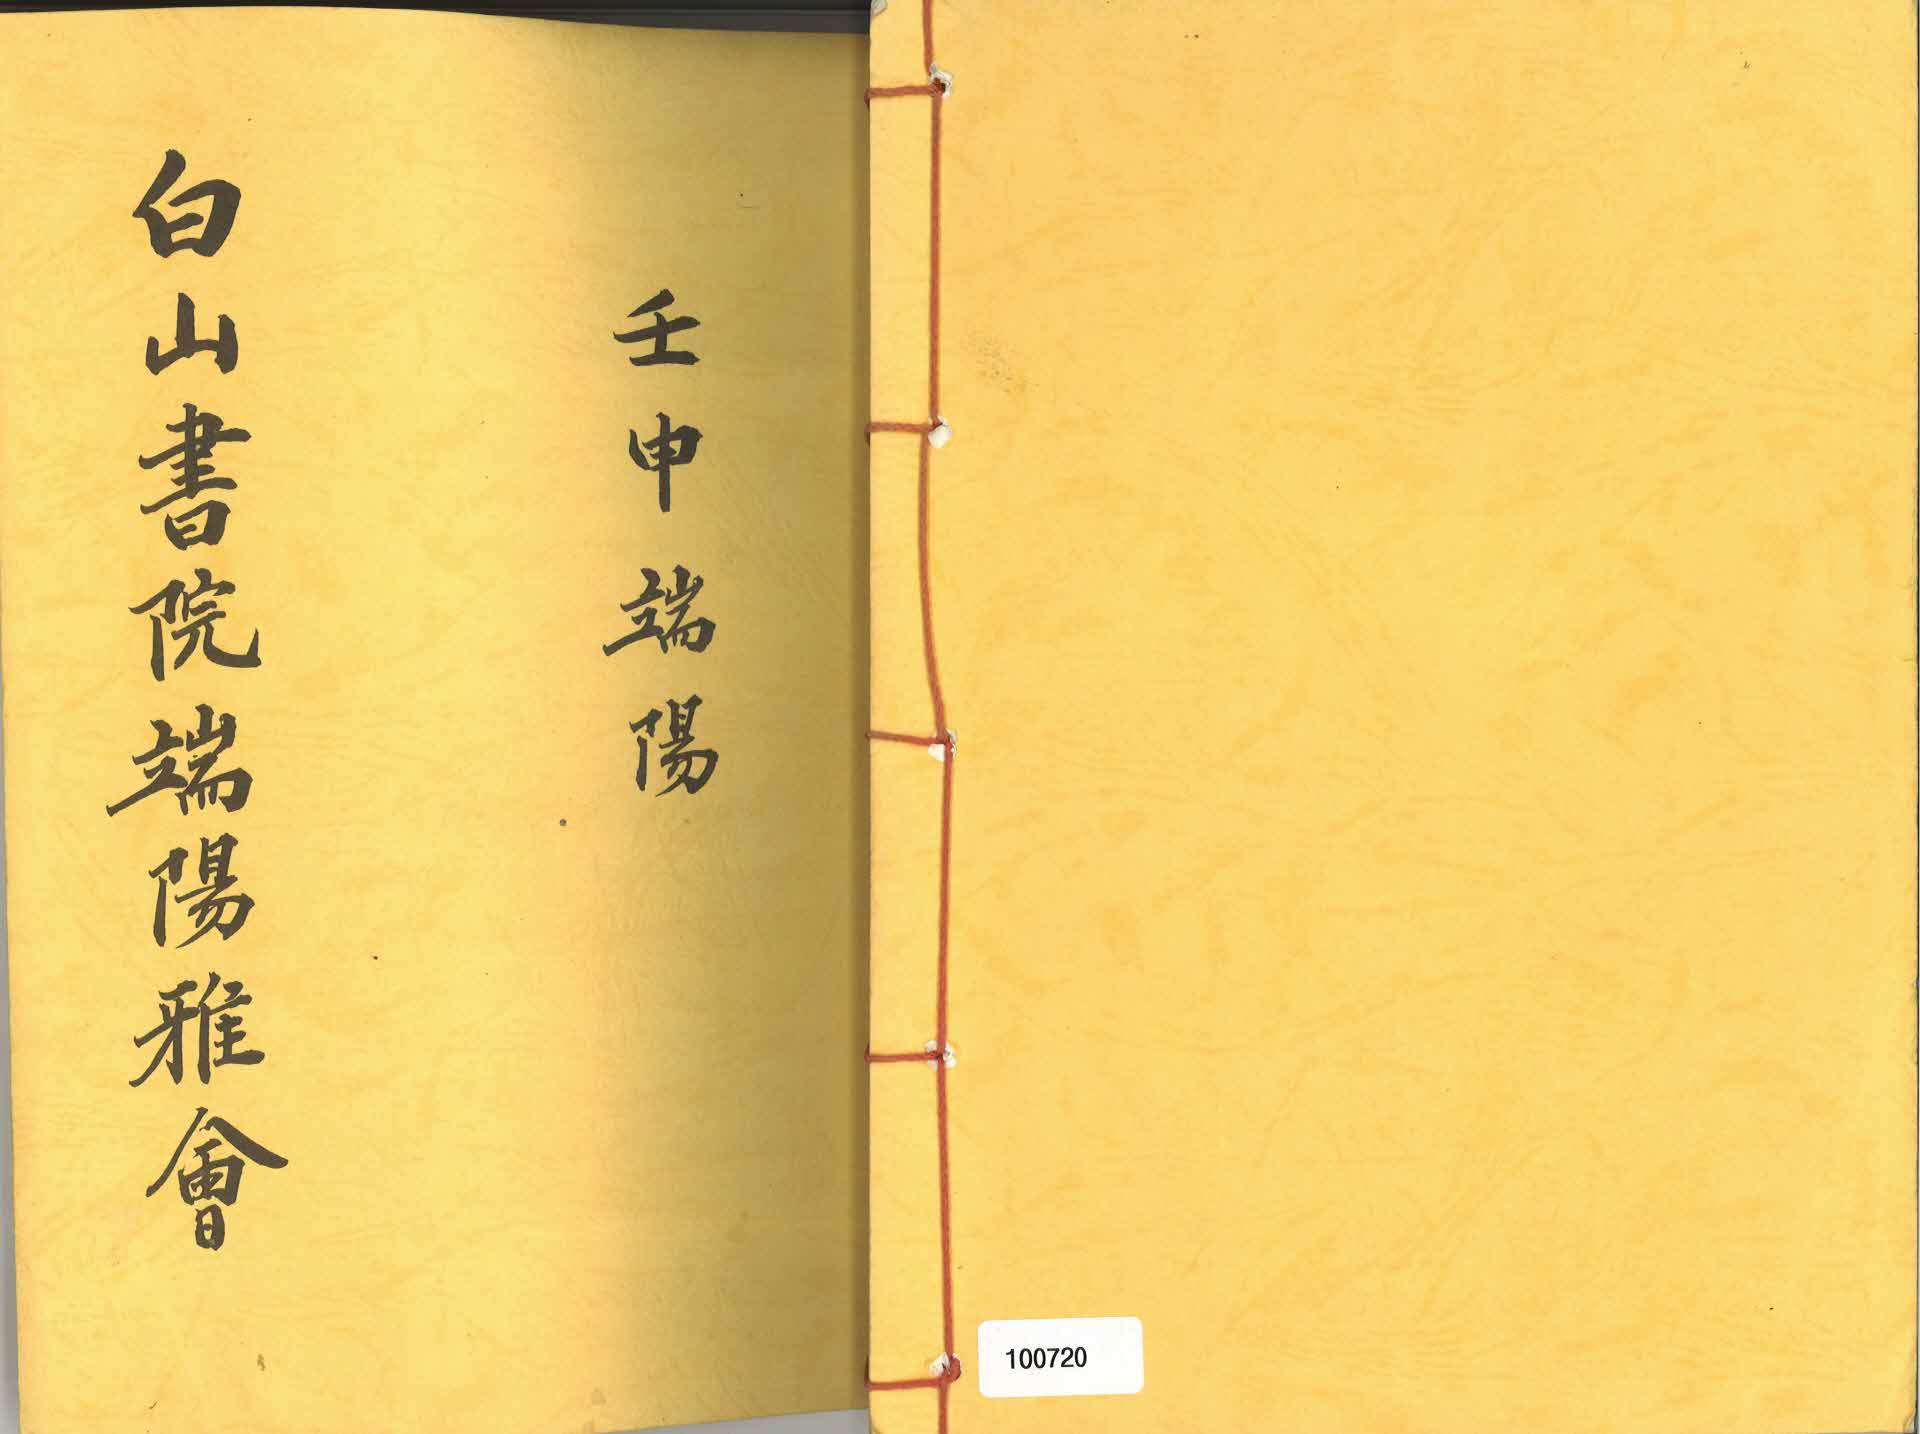 壬申端陽
白山書院端陽雅會
100720